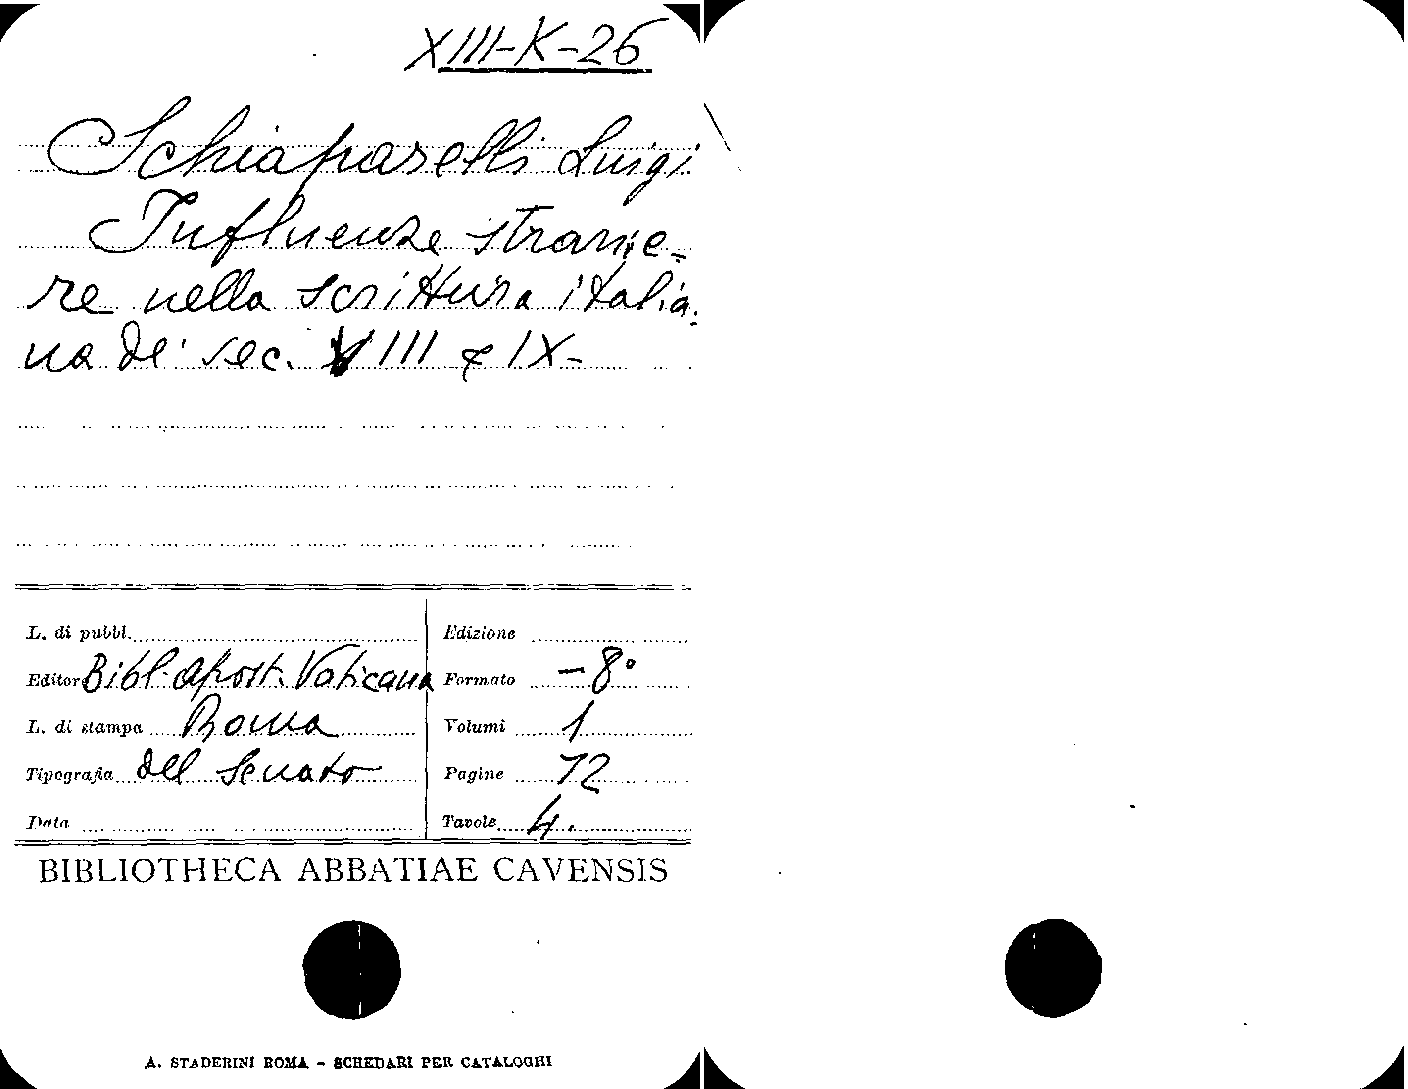 XIII-K-26
Schiaparelli Luigi
Influenze stranie-
re nella scrittura italia-
na de' sec. VIII e IX-
L. di pubbl.
Edizione
Editore Bibl. Apost. Vaticana
Formato -8°
L. di stampa Roma
Volumi 1
Tipografia del Senato
Pagine 72
Data
Tavole 4.
BIBLIOTHECA ABBATIAE CAVENSIS
A. STADERINI ROMA - SCHEDARI PER CATALOGHI